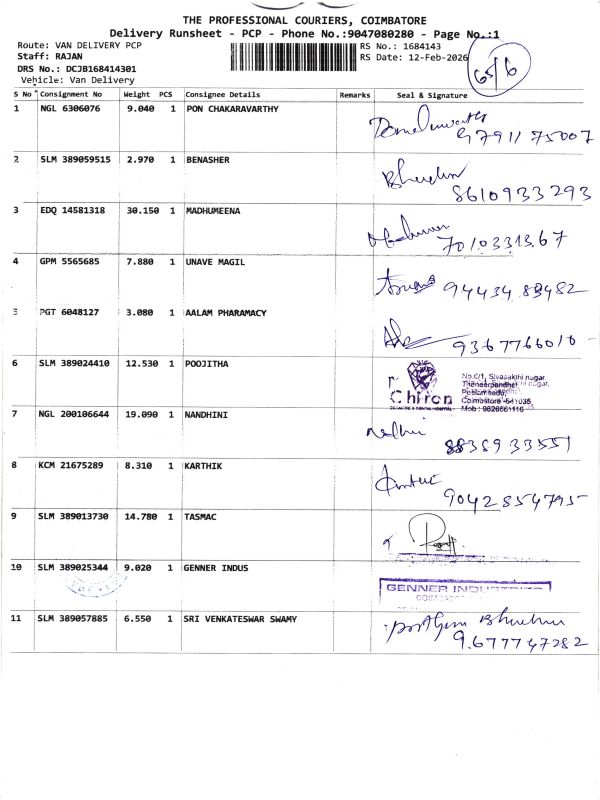 THE PROFESSIONAL COURIERS, COIMBATORE
Delivery Runsheet - PCP - Phone No.:9047080280 - Page No.:1
Route: VAN DELIVERY PCP
RS No.: 1684143
Staff: RAJAN
RS Date: 12-Feb-2026
DRS No.: DCJB168414301
Vehicle: Van Delivery
65/6
S No Consignment No Weight PCS Consignee Details Remarks Seal & Signature
1 NGL 6306076 9.040 1 PON CHAKARAVARTHY
97911 75007
2 SLM 389059515 2.970 1 BENASHER
8610933293
3 EDQ 14581318 30.150 1 MADHUMEENA
7010331367
4 GPM 5565685 7.880 1 UNAVE MAGIL
94434 83482
5 PGT 6048127 3.080 1 AALAM PHARAMACY
9367766010
6 SLM 389024410 12.530 1 POOJITHA
Chiron
No.6/1, Sivasakthi nagar,
Coimbatore-641035
7 NGL 200106644 19.090 1 NANDHINI
88389 33551
8 KCM 21675289 8.310 1 KARTHIK
90428 54795
9 SLM 389013730 14.780 1 TASMAC
10 SLM 389025344 9.020 1 GENNER INDUS
GENNER INDUSTRIES
11 SLM 389057885 6.550 1 SRI VENKATESWAR SWAMY
9677747282